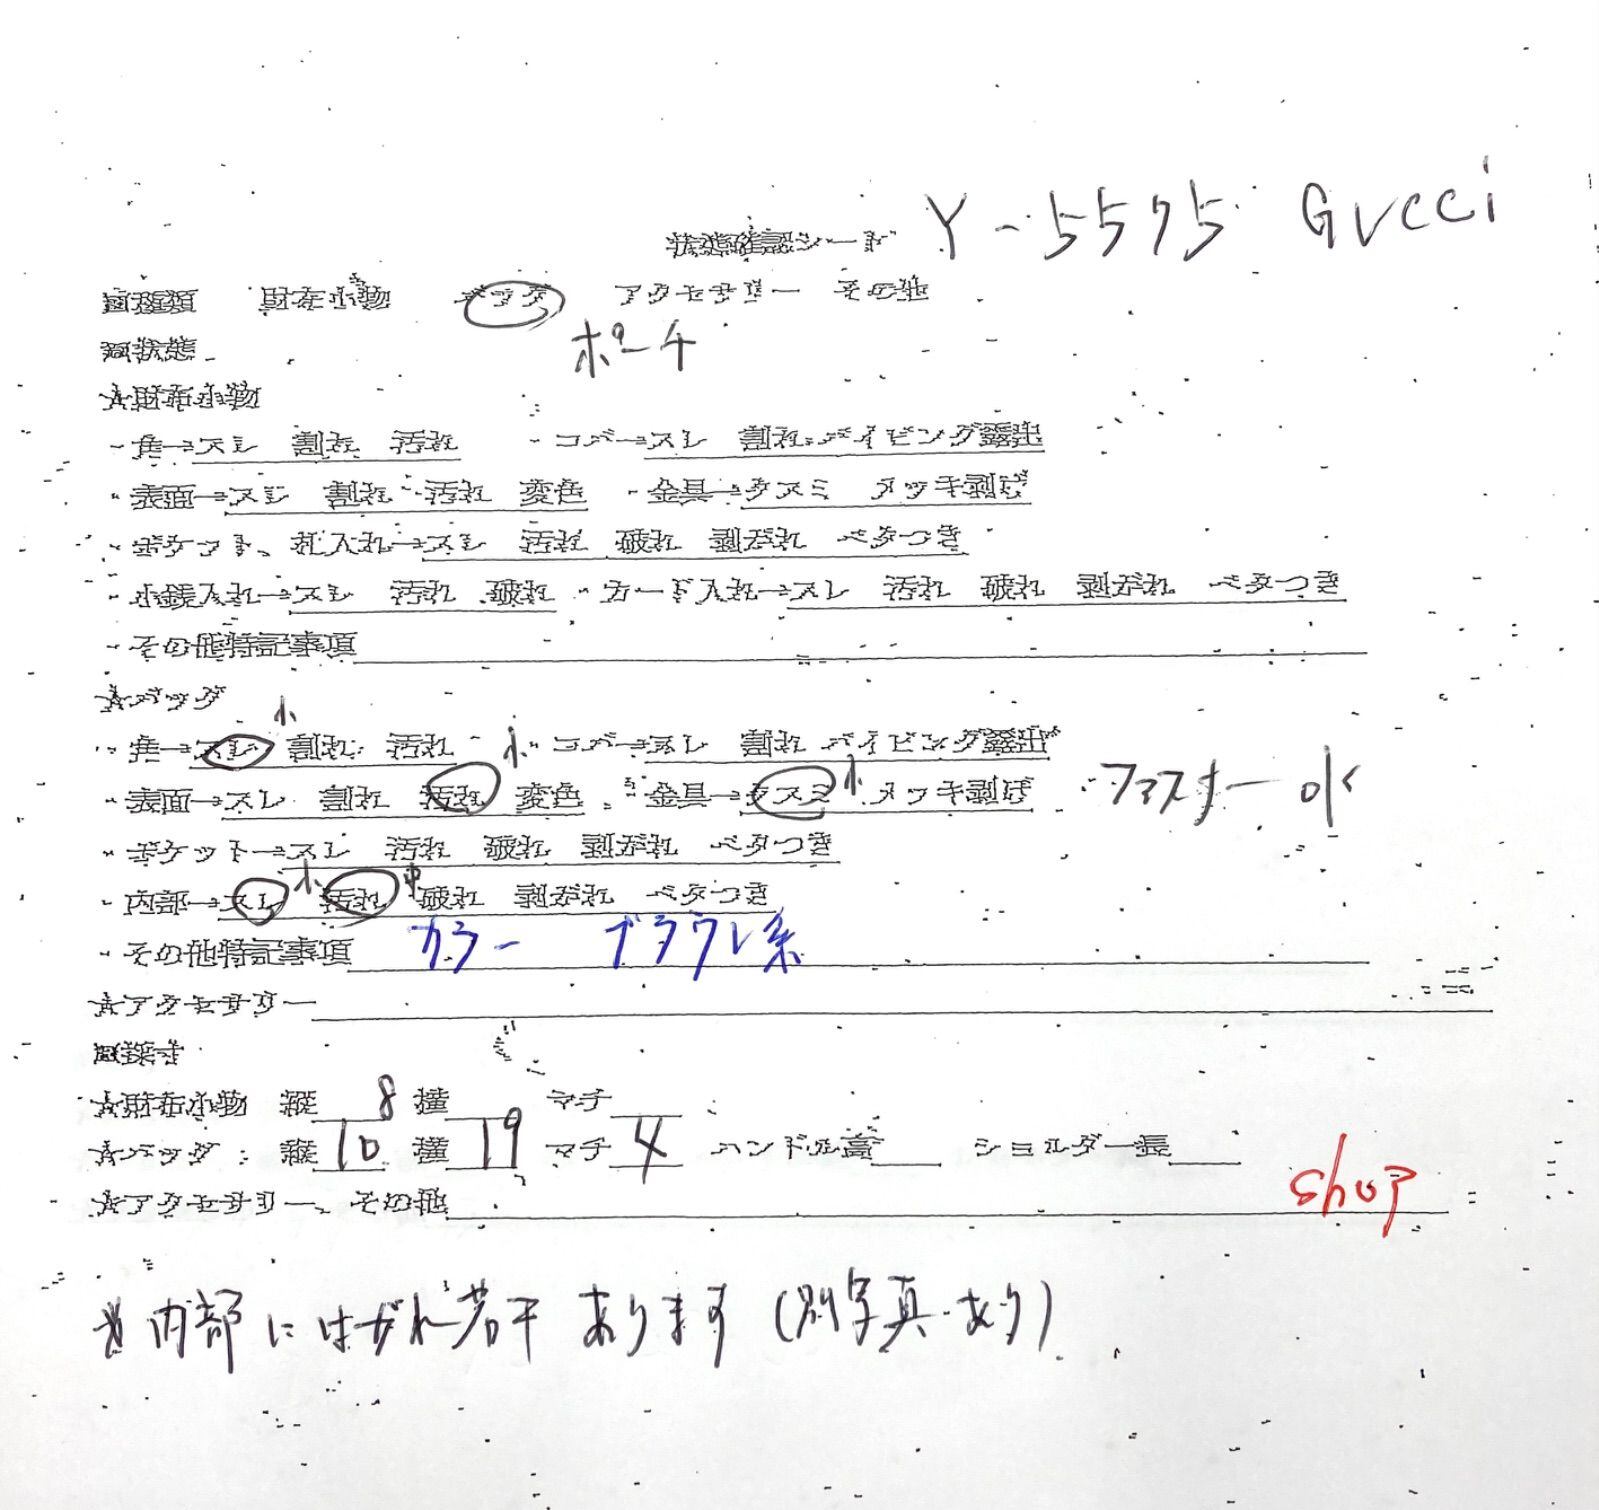 状態確認シート Y-5575 Gucci
■種類 財布小物 バッグ アクセサリー その他
■状態 ポーチ
☆財布小物
・角→スレ 割れ 汚れ ・コバ→スレ 割れ パイピング露出
・表面→スレ 割れ 汚れ 変色 ・金具→クスミ メッキ剥げ
・ポケット、札入れ→スレ 汚れ 破れ 剥がれ ベタつき
・小銭入れ→スレ 汚れ 破れ ・カード入れ→スレ 汚れ 破れ 剥がれ ベタつき
・その他特記事項
☆バッグ
小
・角→スレ 割れ 汚れ 小 ・コバ→スレ 割れ パイピング露出
・表面→スレ 割れ 汚れ 変色 ・金具→クスミ 小 メッキ剥げ ・ファスナー OK
・ポケット→スレ 汚れ 破れ 剥がれ ベタつき
・内部→スレ 小 汚れ 中 破れ 剥がれ ベタつき
・その他特記事項 カラー ブラウン系
☆アクセサリー
■採寸
☆財布小物 縦 8 横 マチ
☆バッグ : 縦 10 横 19 マチ 4 ハンドル高 ショルダー長
☆アクセサリー、その他 shop
内部にはがれ若干あります(別写真あり)